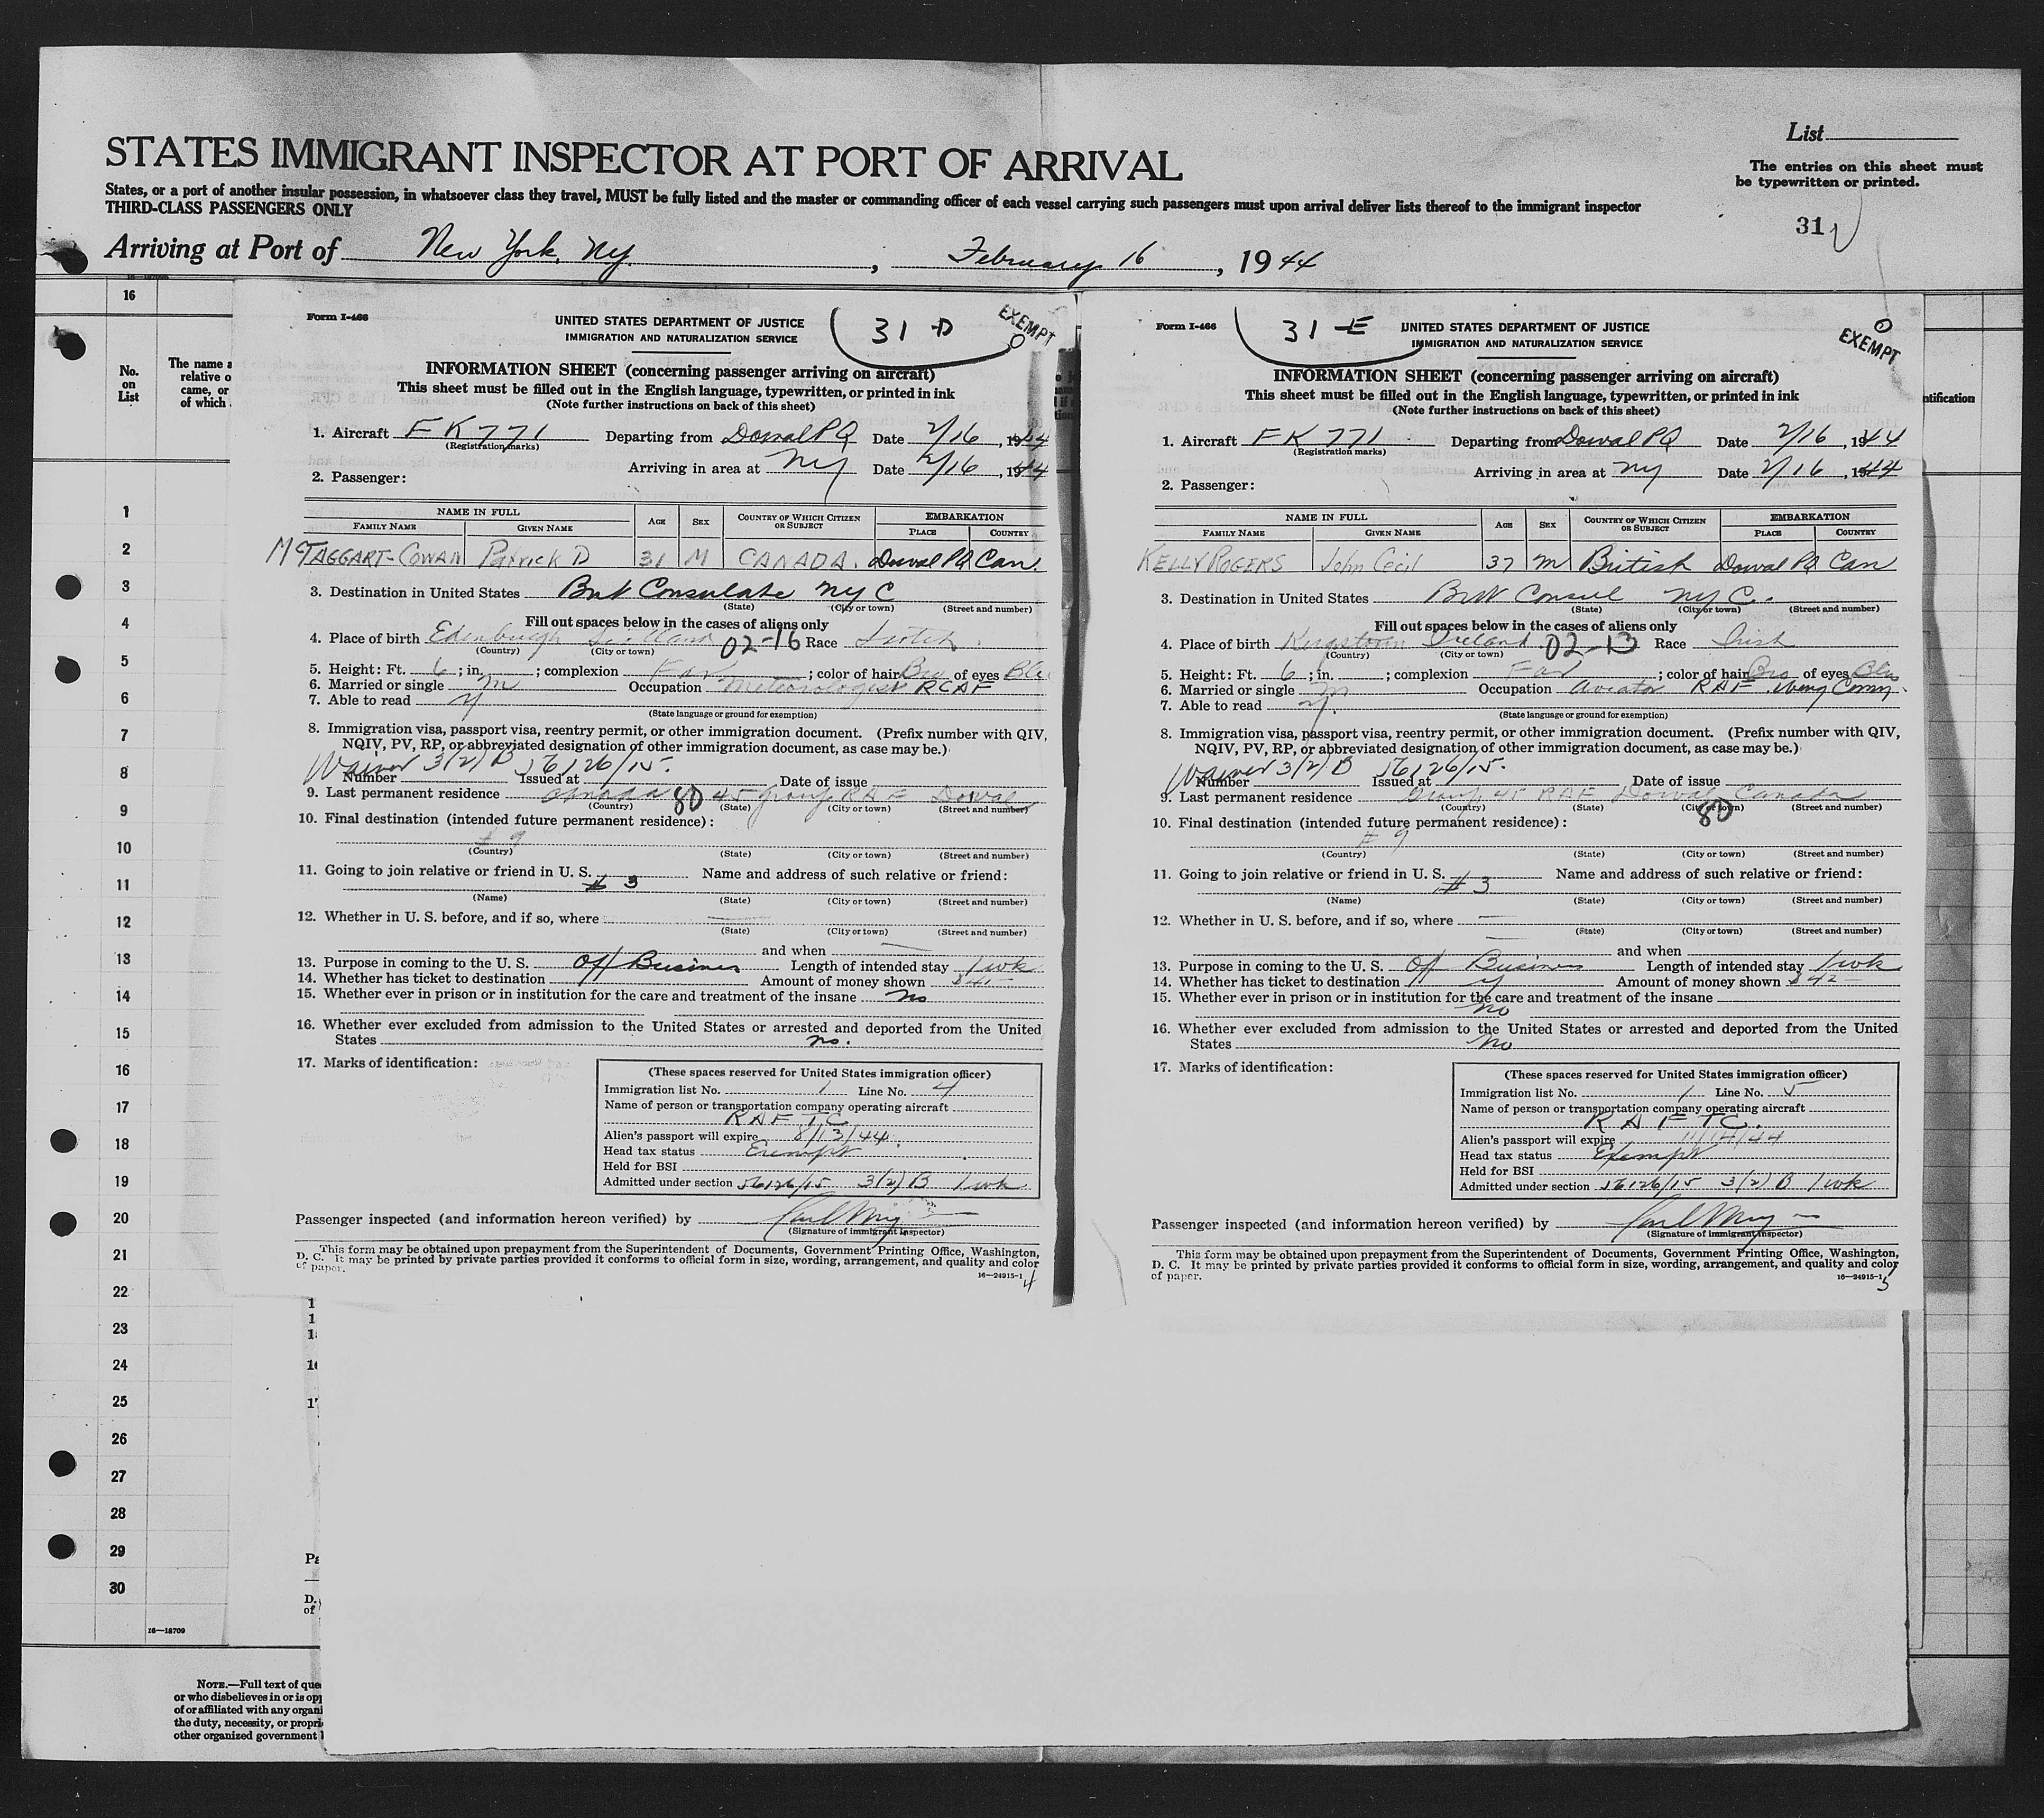 STATES IMMIGRANT INSPECTOR AT PORT OF ARRIVAL
List
The entries on this sheet must
be typewritten or printed.
States, or a port of another insular possession, in whatsoever class they travel, MUST be fully listed and the master or commanding officer of each vessel carrying such passengers must upon arrival deliver lists thereof to the immigrant inspector
THIRD-CLASS PASSENGERS ONLY
31
Arriving at Port of New York, Ny. , February 16 , 1944
16
No.
on
List
The name a
relative o
came, or
of which
ntification
1
2
3
4
5
6
7
8
9
10
11
12
13
14
15
16
17
18
19
20
21
22
23
24
25
26
27
28
29
30
16—18709
NOTE.—Full text of que
or who disbelieves in or is opp
of or affiliated with any organi
the duty, necessity, or propri
other organized government
Form I-466
31-D
EXEMPT
UNITED STATES DEPARTMENT OF JUSTICE
IMMIGRATION AND NATURALIZATION SERVICE
INFORMATION SHEET (concerning passenger arriving on aircraft)
This sheet must be filled out in the English language, typewritten, or printed in ink
(Note further instructions on back of this sheet)
1. Aircraft FK771 Departing from Dorval PQ Date 2/16, 1944
(Registration marks)
Arriving in area at Ny Date 2/16, 1944
2. Passenger:
NAME IN FULL AGE SEX COUNTRY OF WHICH CITIZEN OR SUBJECT EMBARKATION
FAMILY NAME GIVEN NAME PLACE COUNTRY
McTAGGART-COWAN Patrick D 31 M CANADA. Dorval PQ Can.
3. Destination in United States Brit Consulate NYC
(State) (City or town) (Street and number)
Fill out spaces below in the cases of aliens only
4. Place of birth Edinburgh Scotland 02-16 Race Scotch
(Country) (City or town)
5. Height: Ft. 6 ; in. ; complexion Fair ; color of hair Bro of eyes Blu
6. Married or single M Occupation Meteorologist RCAF
7. Able to read y
(State language or ground for exemption)
8. Immigration visa, passport visa, reentry permit, or other immigration document. (Prefix number with QIV,
NQIV, PV, RP, or abbreviated designation of other immigration document, as case may be.)
Waiver 3(2)B 56126/15.
Number Issued at Date of issue
9. Last permanent residence Canada 80 45 group RAF Dorval
(Country) (State) (City or town) (Street and number)
10. Final destination (intended future permanent residence):
# 9
(Country) (State) (City or town) (Street and number)
11. Going to join relative or friend in U. S. Name and address of such relative or friend:
# 3
(Name) (State) (City or town) (Street and number)
12. Whether in U. S. before, and if so, where
(State) (City or town) (Street and number)
and when
13. Purpose in coming to the U. S. Off Business Length of intended stay 1 wk
14. Whether has ticket to destination y Amount of money shown $41
15. Whether ever in prison or in institution for the care and treatment of the insane No
16. Whether ever excluded from admission to the United States or arrested and deported from the United
States no.
17. Marks of identification:
(These spaces reserved for United States immigration officer)
Immigration list No. 1 Line No. 4
Name of person or transportation company operating aircraft
RAF TC
Alien's passport will expire 8/13/44.
Head tax status Exempt
Held for BSI
Admitted under section 56126/15 3(2)B 1 wk
Passenger inspected (and information hereon verified) by
(Signature of immigrant inspector)
This form may be obtained upon prepayment from the Superintendent of Documents, Government Printing Office, Washington,
D. C. It may be printed by private parties provided it conforms to official form in size, wording, arrangement, and quality and color
of paper.
16—24915-1
4
Form I-466
31-E
EXEMPT
UNITED STATES DEPARTMENT OF JUSTICE
IMMIGRATION AND NATURALIZATION SERVICE
INFORMATION SHEET (concerning passenger arriving on aircraft)
This sheet must be filled out in the English language, typewritten, or printed in ink
(Note further instructions on back of this sheet)
1. Aircraft FK771 Departing from Dorval PQ Date 2/16 1944
(Registration marks)
Arriving in area at ny Date 2/16, 1944
2. Passenger:
NAME IN FULL AGE SEX COUNTRY OF WHICH CITIZEN OR SUBJECT EMBARKATION
FAMILY NAME GIVEN NAME PLACE COUNTRY
KELLY ROGERS John Cecil 37 M British Dorval PQ Can
3. Destination in United States Brit Consul NYC.
(State) (City or town) (Street and number)
Fill out spaces below in the cases of aliens only
4. Place of birth Kingstown Ireland 02-13 Race Irish
(Country) (City or town)
5. Height: Ft. 6 ; in. ; complexion Fair ; color of hair Bro of eyes Blu
6. Married or single M Occupation Aviator RAF Wing Comm
7. Able to read y.
(State language or ground for exemption)
8. Immigration visa, passport visa, reentry permit, or other immigration document. (Prefix number with QIV,
NQIV, PV, RP, or abbreviated designation of other immigration document, as case may be.)
Waiver 3(2)B 56126/15.
Number Issued at Date of issue
9. Last permanent residence Group 45 RAF Dorval Canada
(Country) (State) (City or town) (Street and number)
80
10. Final destination (intended future permanent residence):
# 9
(Country) (State) (City or town) (Street and number)
11. Going to join relative or friend in U. S. Name and address of such relative or friend:
# 3
(Name) (State) (City or town) (Street and number)
12. Whether in U. S. before, and if so, where
(State) (City or town) (Street and number)
and when
13. Purpose in coming to the U. S. Off Business Length of intended stay 1 wk
14. Whether has ticket to destination y Amount of money shown $42
15. Whether ever in prison or in institution for the care and treatment of the insane
No
16. Whether ever excluded from admission to the United States or arrested and deported from the United
States No
17. Marks of identification:
(These spaces reserved for United States immigration officer)
Immigration list No. 1 Line No. 5
Name of person or transportation company operating aircraft
RAF TC.
Alien's passport will expire 11/14/44
Head tax status Exempt
Held for BSI
Admitted under section 56126/15 3(2)B 1 wk
Passenger inspected (and information hereon verified) by
(Signature of immigrant inspector)
This form may be obtained upon prepayment from the Superintendent of Documents, Government Printing Office, Washington,
D. C. It may be printed by private parties provided it conforms to official form in size, wording, arrangement, and quality and color
of paper.
16—24915-1
5